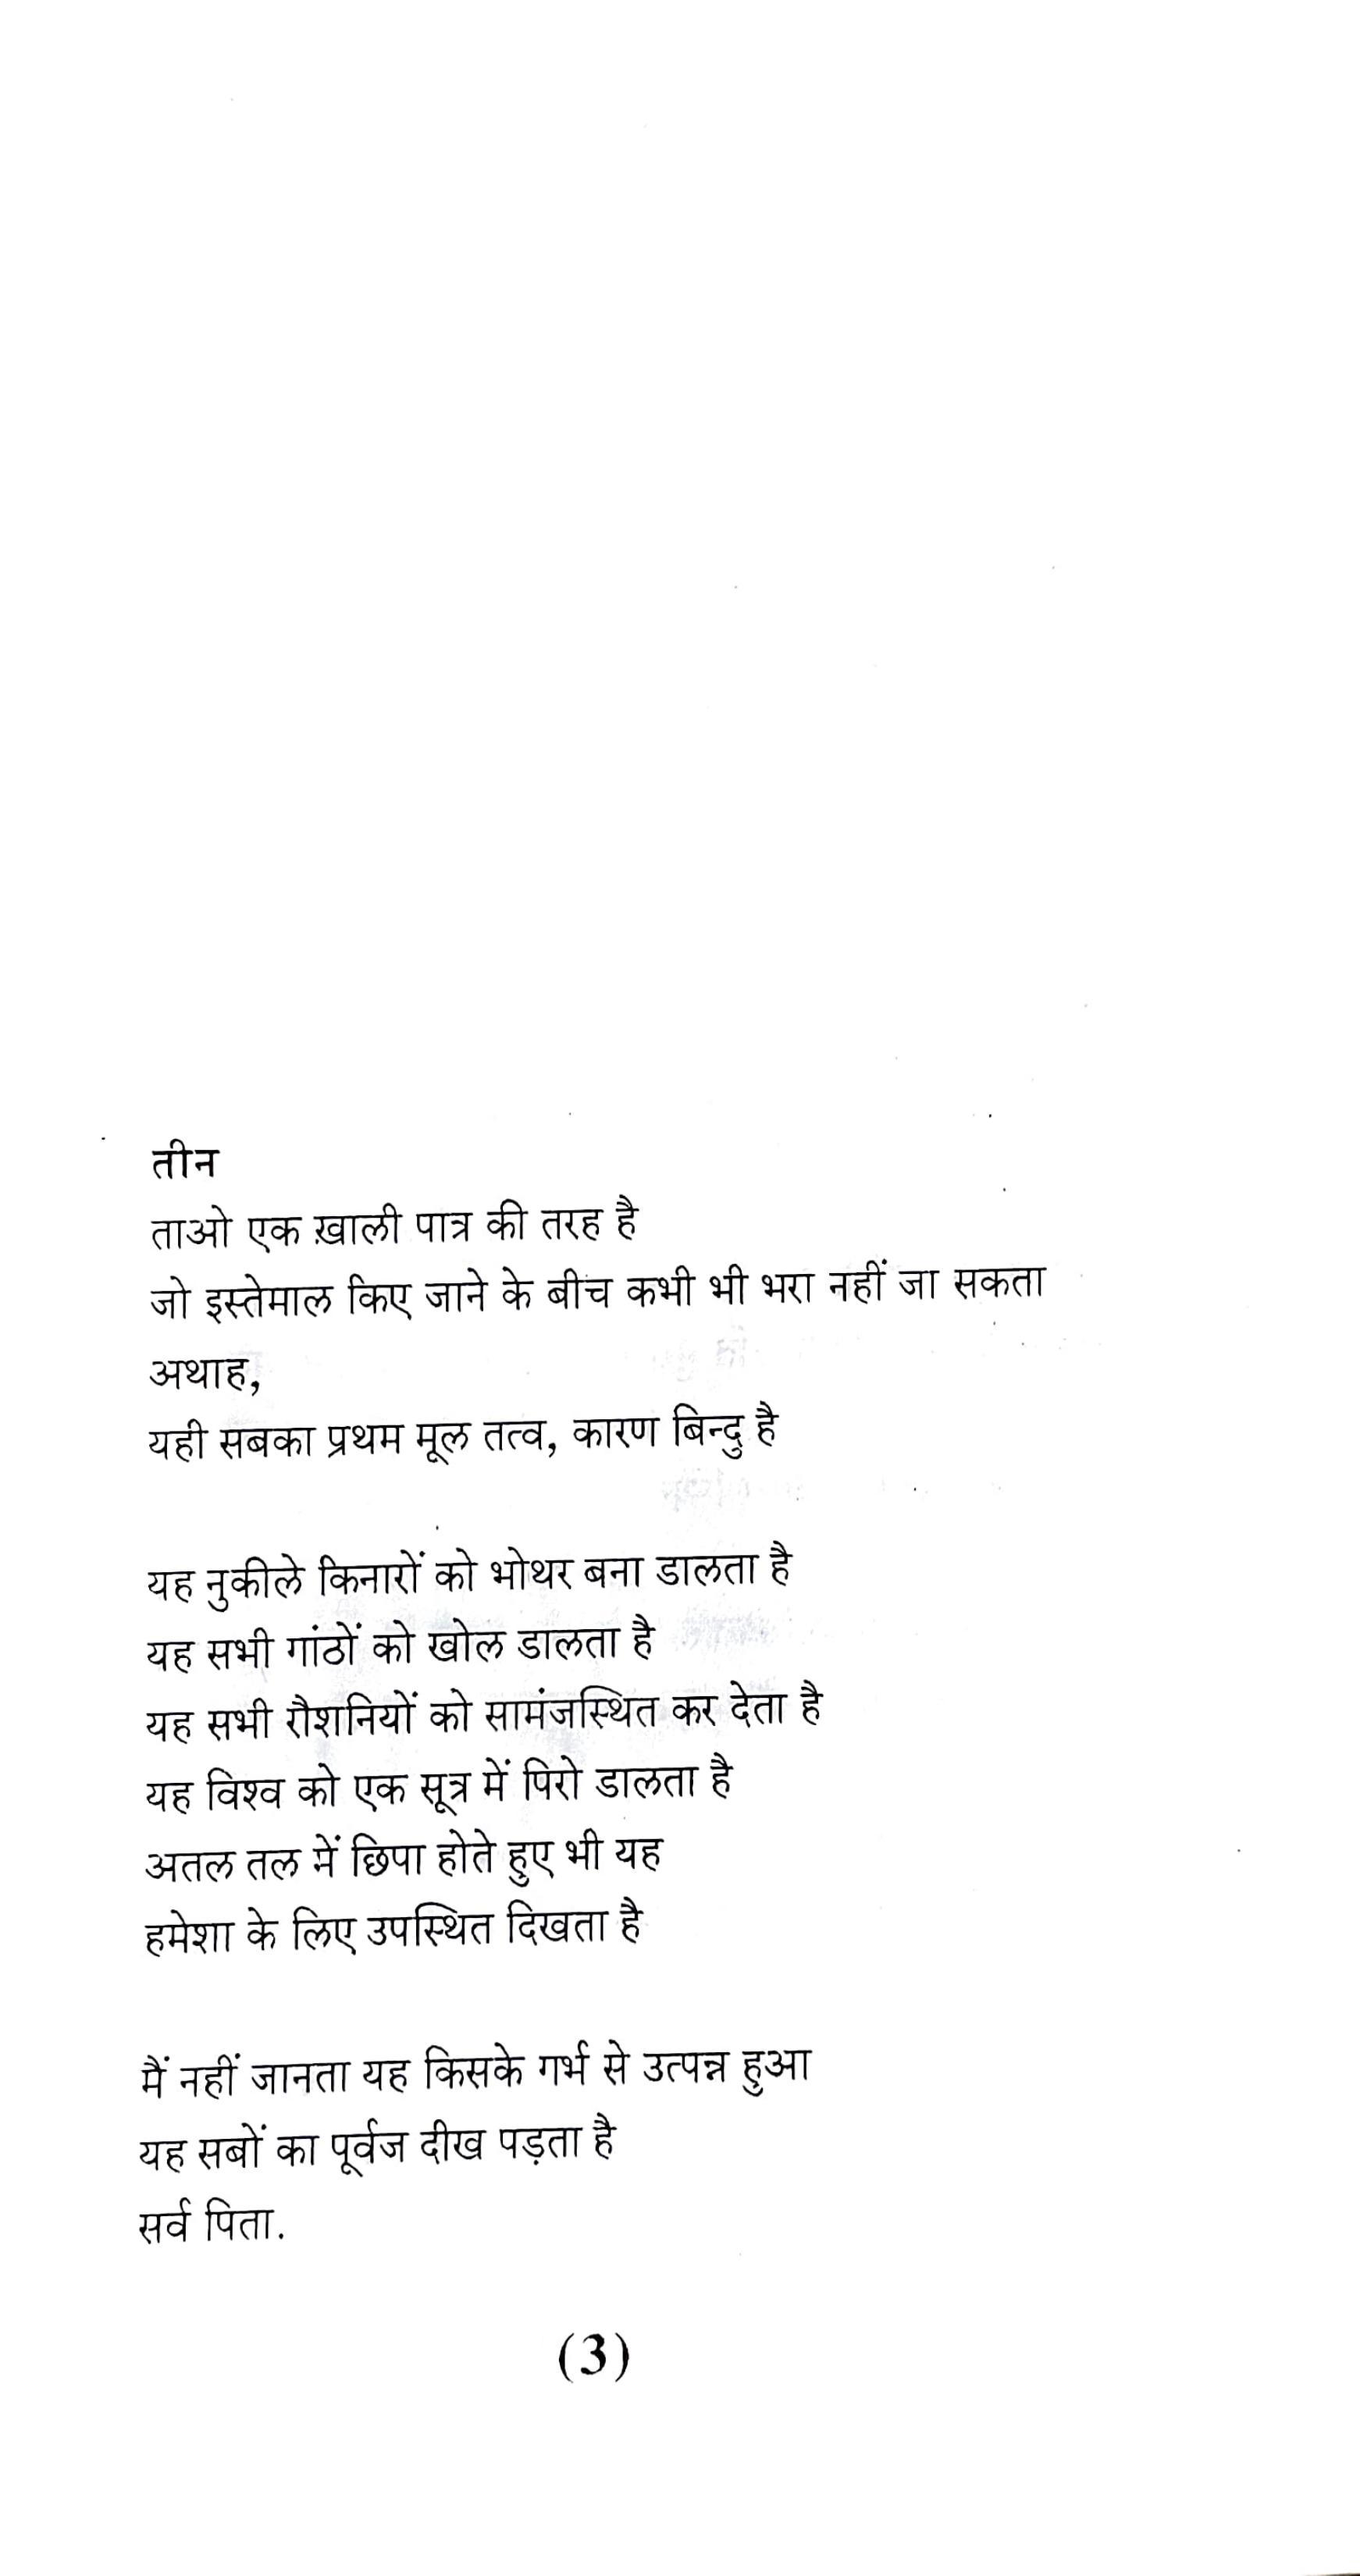 तीन
ताओ एक ख़ाली पात्र की तरह है
जो इस्तेमाल किए जाने के बीच कभी भी भरा नहीं जा सकता
अथाह,
यही सबका प्रथम मूल तत्व, कारण बिन्दु है
यह नुकीले किनारों को भोथर बना डालता है
यह सभी गांठों को खोल डालता है
यह सभी रौशनियों को सामंजस्थित कर देता है
यह विश्व को एक सूत्र में पिरो डालता है
अतल तल में छिपा होते हुए भी यह
हमेशा के लिए उपस्थित दिखता है
मैं नहीं जानता यह किसके गर्भ से उत्पन्न हुआ
यह सबों का पूर्वज दीख पड़ता है
सर्व पिता.
(3)